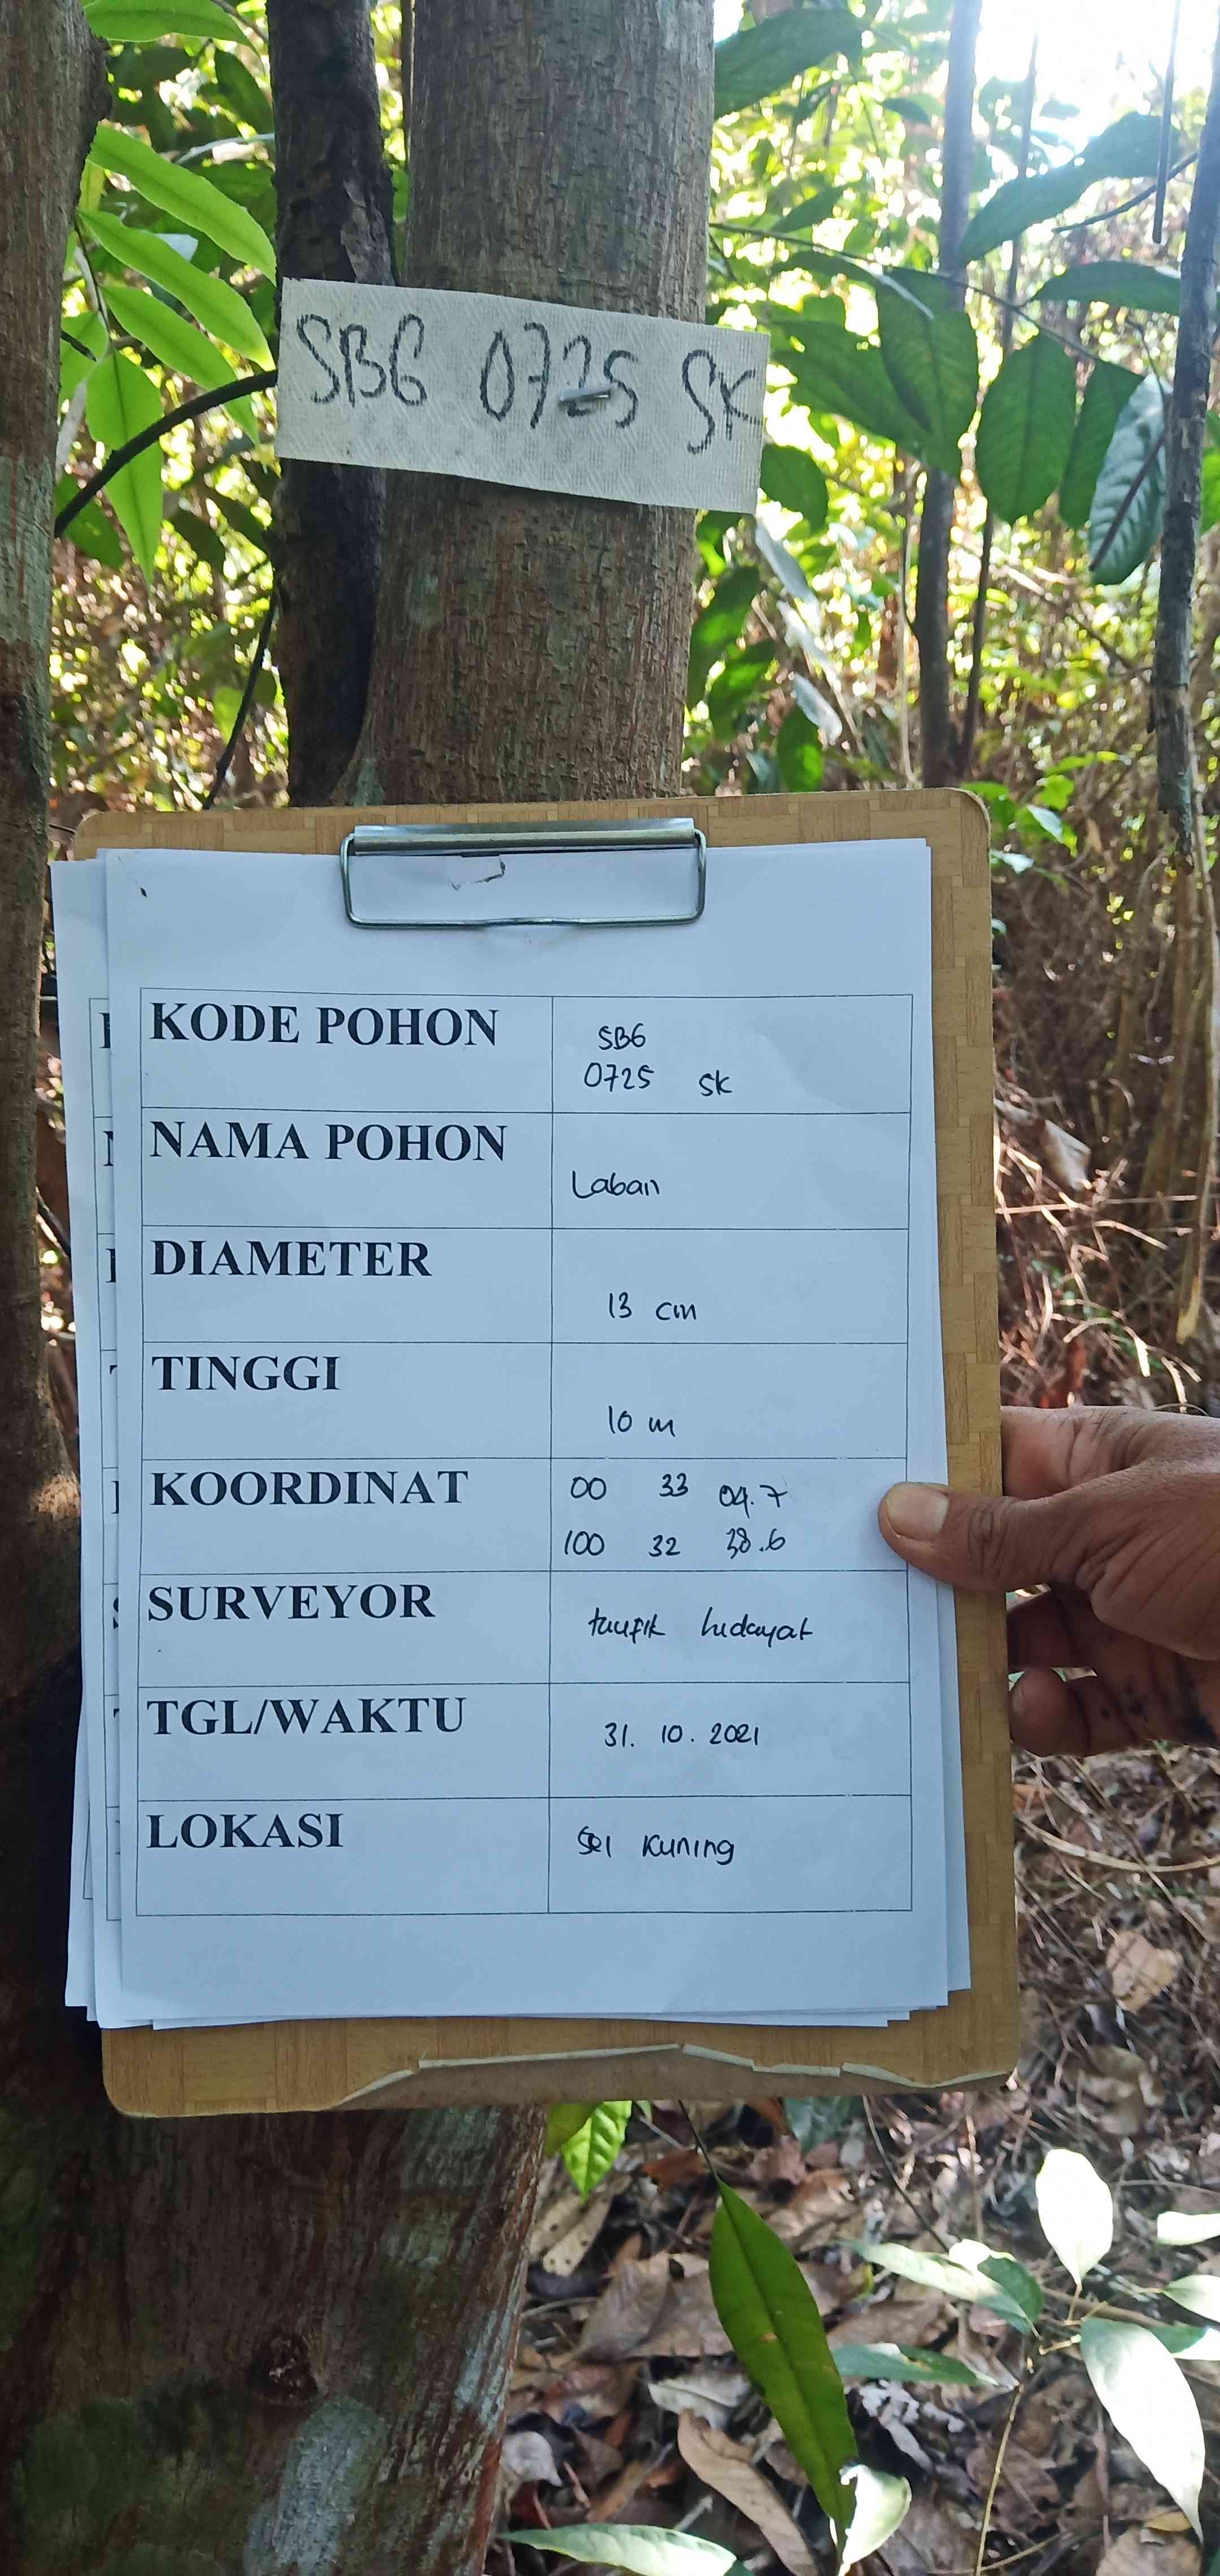 SBG 0725 SK
KODE POHON
SBG
0725 SK
NAMA POHON
Laban
DIAMETER
13 cm
TINGGI
10 m
KOORDINAT
00 33 04.7
100 32 38.6
SURVEYOR
taufik hidayat
TGL/WAKTU
31. 10. 2021
LOKASI
Sei Kuning